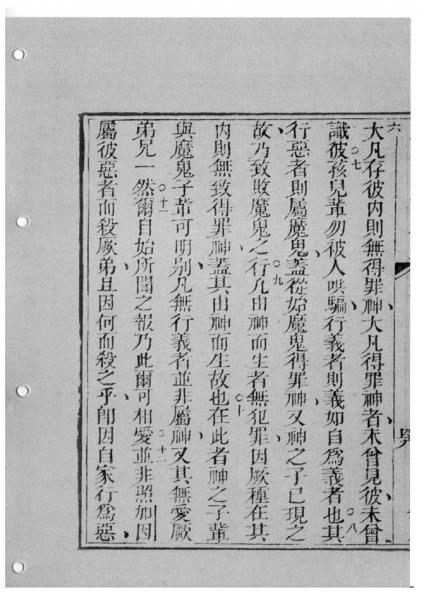 六大凡存彼內則無得罪神大凡得罪神者未曾見彼未曾
識彼○七孩兒輩勿被人哄騙行義者則義如自為義者也○八其
行惡者則屬魔鬼蓋從始魔鬼得罪神又神之子已現之
故乃致敗魔鬼之行○九凡由神而生者無犯罪因厥種在其
內則無致得罪神蓋其由神而生故也○十在此者神之子輩
與魔鬼子輩可明別凡無行義者並非屬神又其無愛厥
弟兄一然○十一爾自始所聞之報乃此爾可相愛○十二並非照加因
屬彼惡者而殺厥弟且因何而殺之乎即因自家行為惡